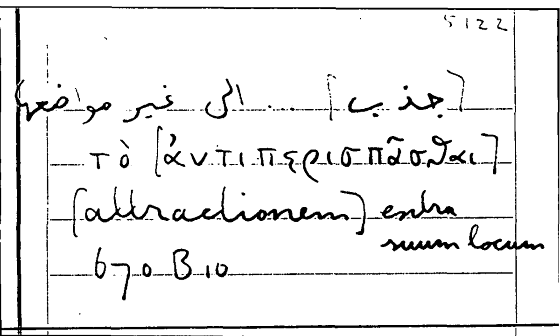 5122
[جذب] ... الى غير مواضعها
τὸ [ἀντιπερισπᾶσθαι]
[attractionem] extra
suum locum
670 B 10